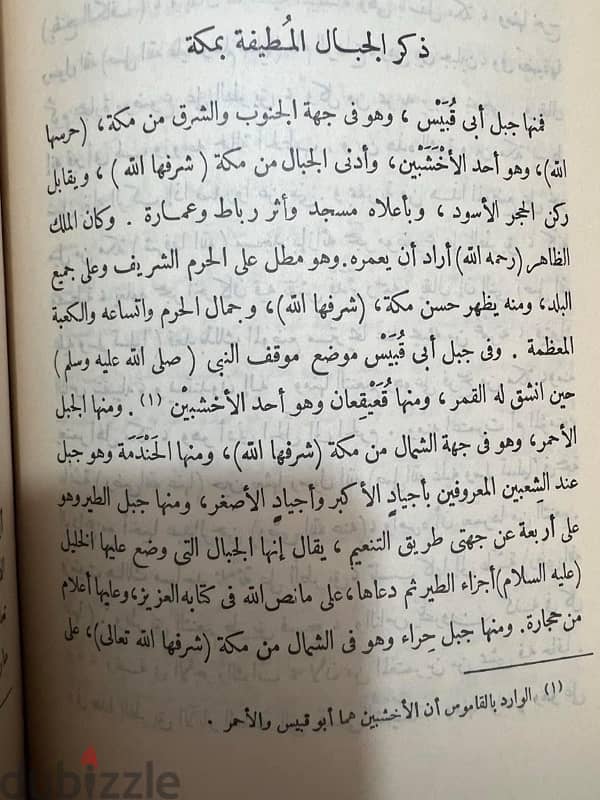 ذكر الجبال المُطيفة بمكة
فمنها جبل أبى قُبَيْس ، وهو فى جهة الجنوب والشرق من مكة، (حرسها
الله)، وهو أحد الأخْشَبَيْن، وأدنى الجبال من مكة ( شرفها الله ) ، ويقابل
ركن الحجر الأسود ، وبأعلاه مسجد وأثر رباط وعمارة . وكان الملك
الظاهر (رحمه الله) أراد أن يعمره. وهو مطل على الحرم الشريف وعلى جميع
البلد، ومنه يظهر حسن مكة، (شرفها الله)، وجمال الحرم واتساعه والكعبة
المعظمة . وفى جبل أبى قُبَيْس موضع موقف النبي ( صلى الله عليه وسلم)
حين انشق له القمر ، ومنها قُعَيْقِعان وهو أحد الأخشبيْن (١) . ومنها الجبل
الأحمر، وهو فى جهة الشمال من مكة (شرفها الله)، ومنها الخَنْدَمَة وهو جبل
عند الشعبين المعروفين بأجيادٍ الأكبر وأجيادٍ الأصغر، ومنها جبل الطير وهو
على أربعة عن جهتى طريق التنعيم ، يقال إنها الجبال التى وضع عليها الخليل
(عليه السلام) أجزاء الطير ثم دعاها، على ما نص الله فى كتابه العزيز، وعليها أعلام
من حجارة. ومنها جبل حِراء وهو فى الشمال من مكة (شرفها الله تعالى)، على
(١) الوارد بالقاموس أن الأخشبين هما أبو قبيس والأحمر .
dubizzle